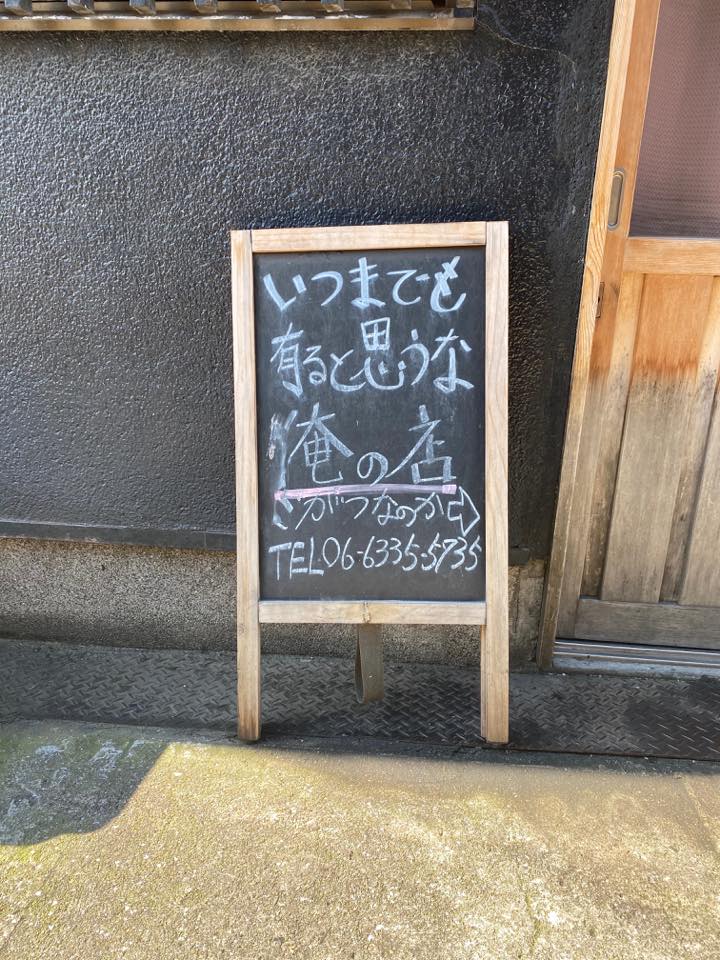 いつまでも
有ると思うな
俺の店
がつなのか⇨
TEL06-6335-5735